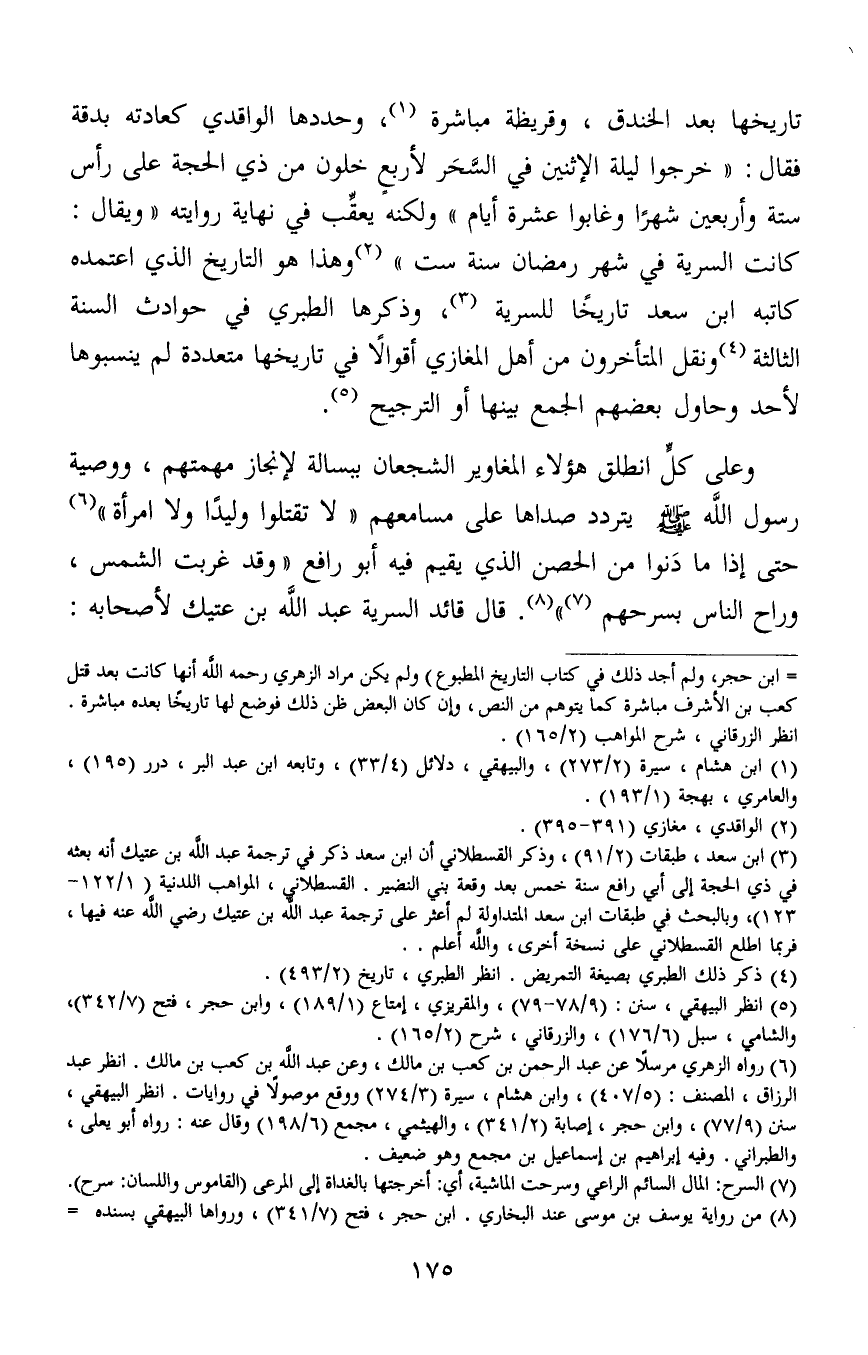 تاريخها بعد الخندق ، وقريظة مباشرة (١)، وحددها الواقدي كعادته بدقة
فقال : « خرجوا ليلة الإثنين في السَّحَر لأربعٍ خلون من ذي الحجة على رأس
ستة وأربعين شهرًا وغابوا عشرة أيام » ولكنه يعقِّب في نهاية روايته « ويقال :
كانت السرية في شهر رمضان سنة ست » (٢)وهذا هو التاريخ الذي اعتمده
كاتبه ابن سعد تاريخًا للسرية (٣)، وذكرها الطبري في حوادث السنة
الثالثة (٤)ونقل المتأخرون من أهل المغازي أقوالًا في تاريخها متعددة لم ينسبوها
لأحد وحاول بعضهم الجمع بينها أو الترجيح (٥).
وعلى كلٍّ انطلق هؤلاء المغاوير الشجعان ببسالة لإنجاز مهمتهم ، ووصية
رسول اللَّه ﷺ يتردد صداها على مسامعهم « لا تقتلوا وليدًا ولا امرأة »(٦)
حتى إذا ما دَنوا من الحصن الذي يقيم فيه أبو رافع « وقد غربت الشمس ،
وراح الناس بسرحهم (٧)»(٨). قال قائد السرية عبد اللَّه بن عتيك لأصحابه :
= ابن حجر، ولم أجد ذلك في كتاب التاريخ المطبوع) ولم يكن مراد الزهري رحمه اللَّه أنها كانت بعد قتل
كعب بن الأشرف مباشرة كما يتوهم من النص ، وإن كان البعض ظن ذلك فوضع لها تاريخًا بعده مباشرة .
انظر الزرقاني ، شرح المواهب (١٦٥/٢) .
(١) ابن هشام ، سيرة (٢٧٣/٢) ، والبيهقي ، دلائل (٣٣/٤) ، وتابعه ابن عبد البر ، درر (١٩٥) ،
والعامري ، بهجة (١٩٣/١) .
(٢) الواقدي ، مغازي (٣٩١-٣٩٥) .
(٣) ابن سعد ، طبقات (٩١/٢) ، وذكر القسطلاني أن ابن سعد ذكر في ترجمة عبد اللَّه بن عتيك أنه بعثه
في ذي الحجة إلى أبي رافع سنة خمس بعد وقعة بني النضير . القسطلاني ، المواهب اللدنية ( ١٢٢/١-
١٢٣)، وبالبحث في طبقات ابن سعد المتداولة لم أعثر على ترجمة عبد اللَّه بن عتيك رضي اللَّه عنه فيها ،
فربما اطلع القسطلاني على نسخة أخرى، واللَّه أعلم . .
(٤) ذكر ذلك الطبري بصيغة التمريض . انظر الطبري ، تاريخ (٤٩٣/٢) .
(٥) انظر البيهقي ، سنن : (٧٨/٩-٧٩) ، والمقريزي ، إمتاع (١٨٩/١) ، وابن حجر ، فتح (٣٤٢/٧)،
والشامي ، سبل (١٧٦/٦) ، والزرقاني ، شرح (١٦٥/٢) .
(٦) رواه الزهري مرسلًا عن عبد الرحمن بن كعب بن مالك ، وعن عبد اللَّه بن كعب بن مالك . انظر عبد
الرزاق ، المصنف : (٤٠٧/٥) ، وابن هشام ، سيرة (٢٧٤/٣) ووقع موصولًا في روايات . انظر البيهقي ،
سنن (٧٧/٩) ، وابن حجر ، إصابة (٣٤١/٢) ، والهيثمي ، مجمع (١٩٨/٦) وقال عنه : رواه أبو يعلى ،
والطبراني . وفيه إبراهيم بن إسماعيل بن مجمع وهو ضعيف .
(٧) السرح: المال السائم الراعي وسرحت الماشية، أي: أخرجتها بالغداة إلى المرعى (القاموس واللسان: سرح).
(٨) من رواية يوسف بن موسى عند البخاري . ابن حجر ، فتح (٣٤١/٧) ، ورواها البيهقي بسنده =
١٧٥